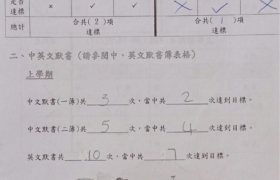 是否達標 × ✓ × × ✓
總計 合共( 2 )項達標 合共( 1 )項達標
二、中英文默書（請參閱中、英文默書簿表格）
上學期
中文默書(一簿)共 3 次，當中共 2 次達到目標。
中文默書(二簿)共 5 次，當中共 4 次達到目標。
英文默書共 10 次，當中共 7 次達到目標。